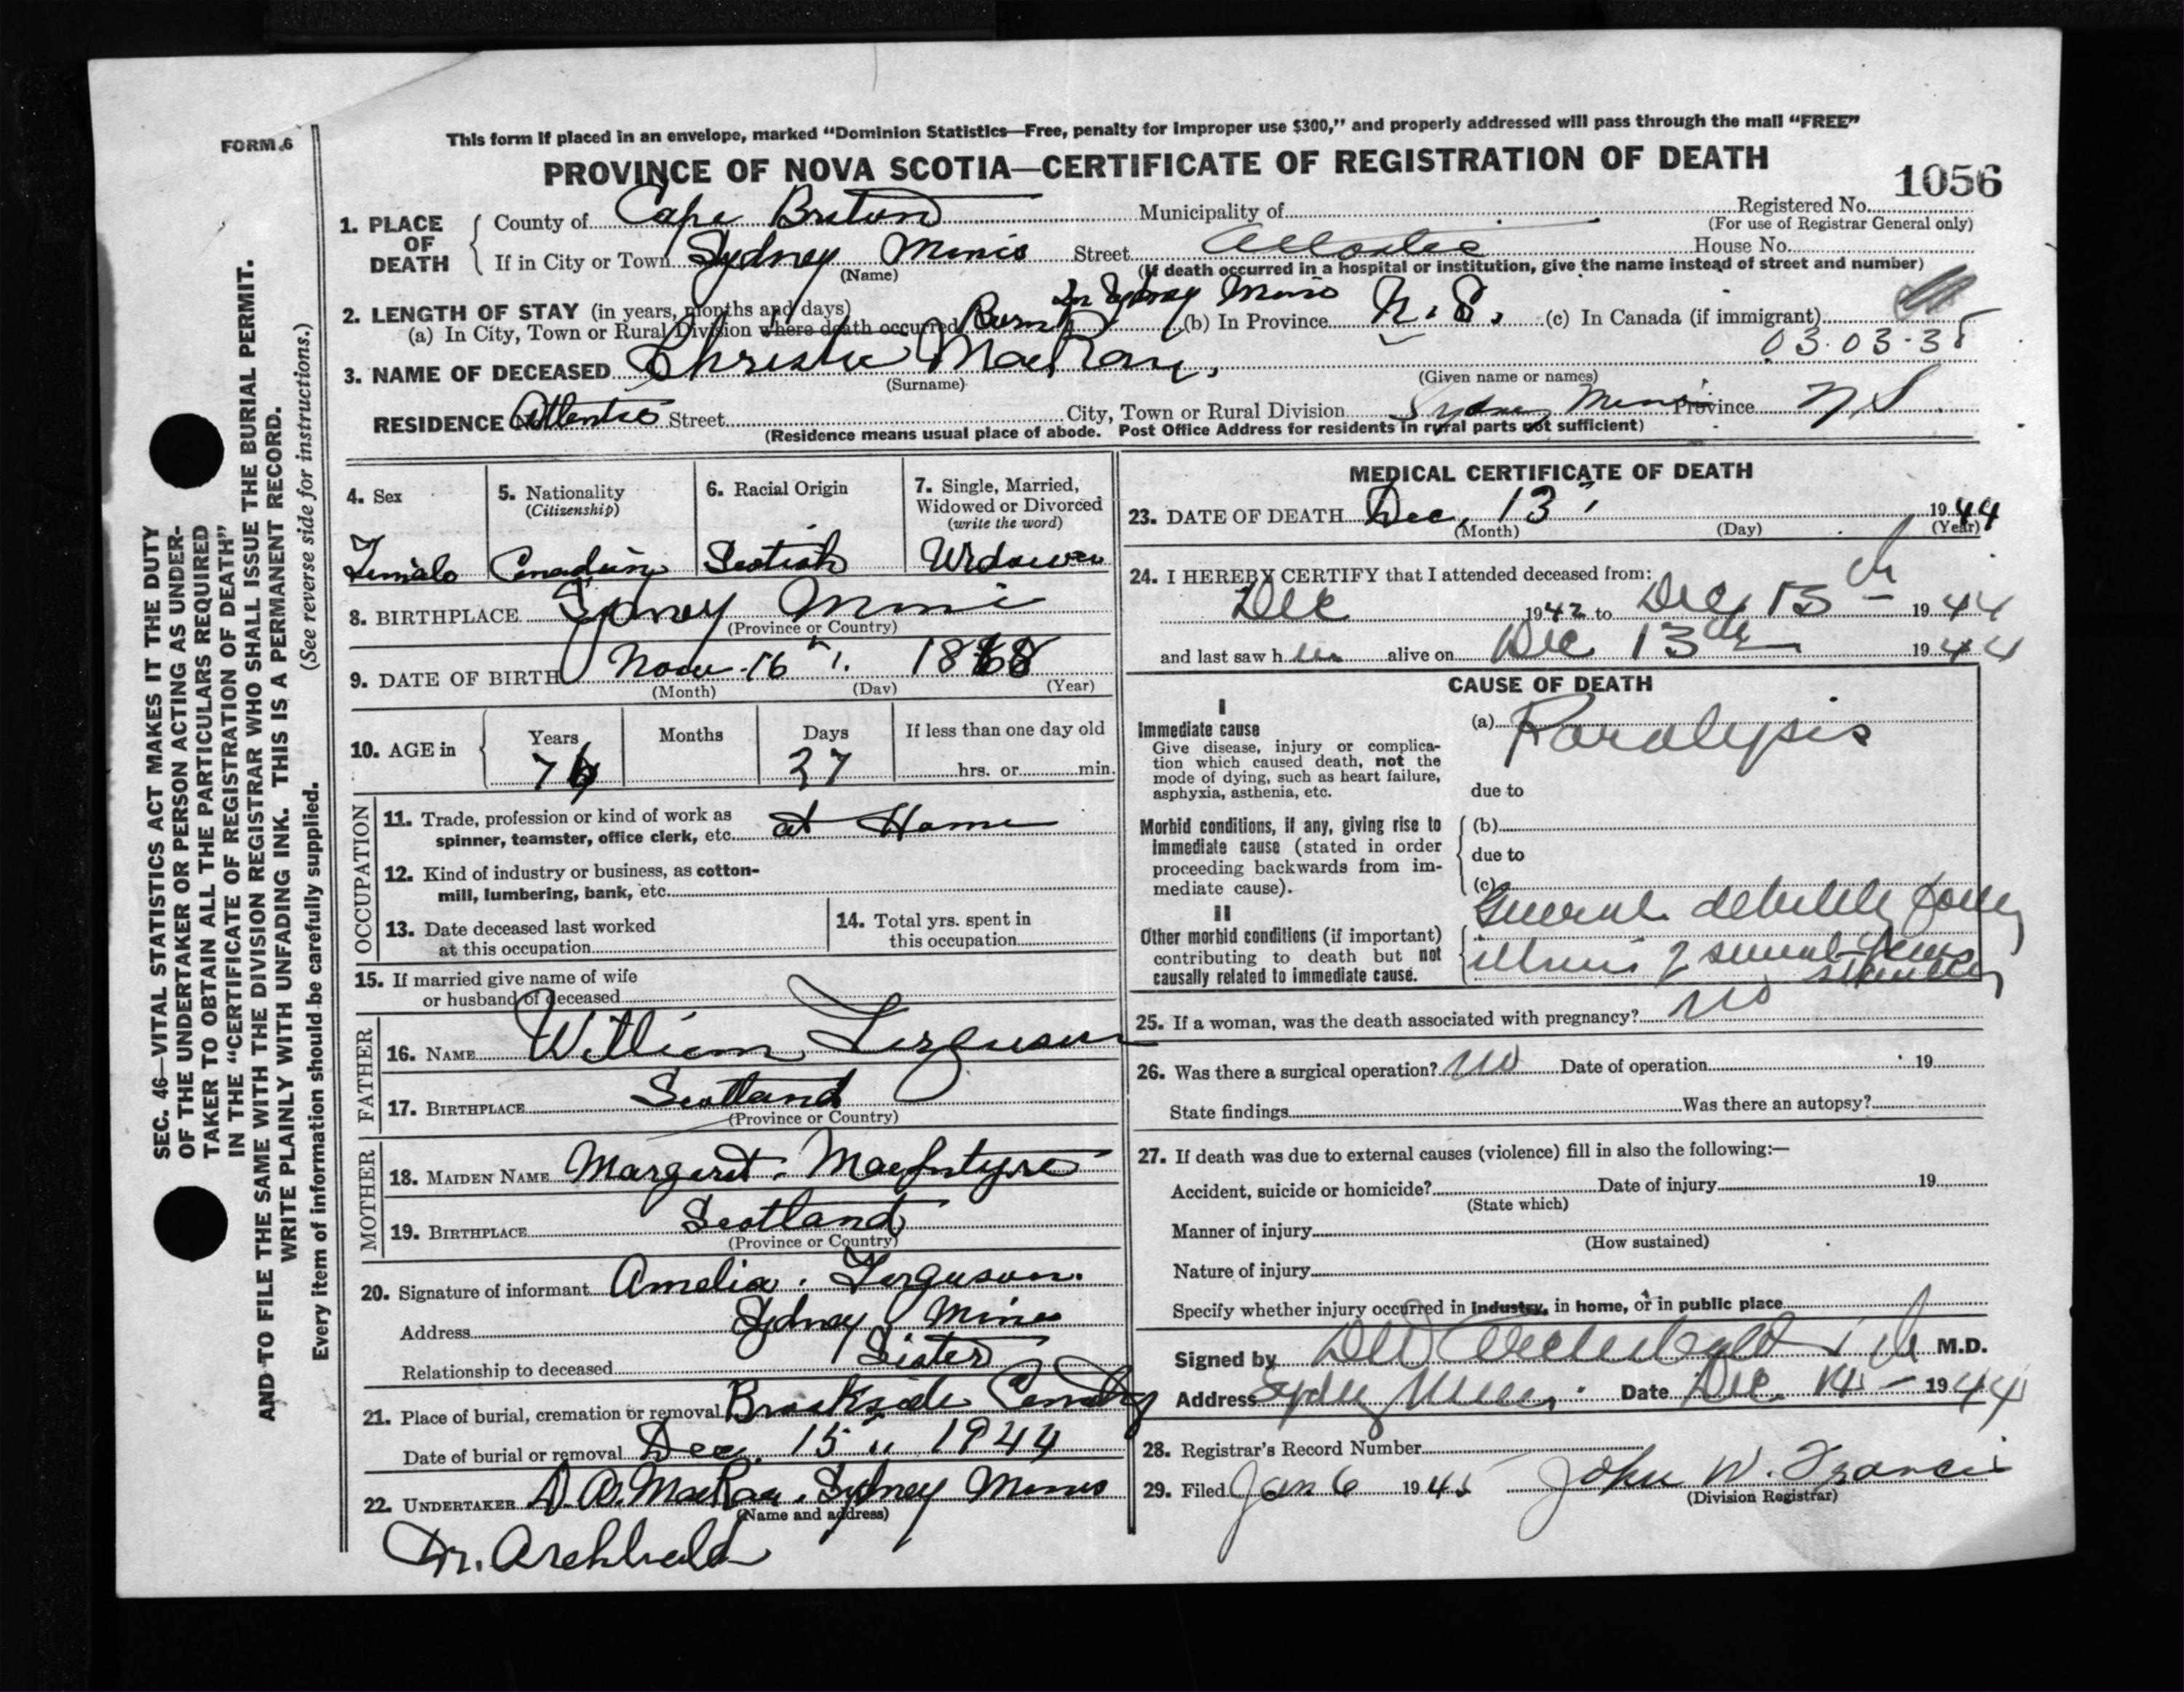 FORM 6
This form if placed in an envelope, marked “Dominion Statistics—Free, penalty for improper use $300,” and properly addressed will pass through the mail “FREE”
PROVINCE OF NOVA SCOTIA—CERTIFICATE OF REGISTRATION OF DEATH
1056
1. PLACE OF DEATH { County of Cape Breton Municipality of Registered No.
(For use of Registrar General only)
If in City or Town Sydney Mines Street House No.
(Name) (If death occurred in a hospital or institution, give the name instead of street and number)
2. LENGTH OF STAY (in years, months and days) In Sydney Mines
(a) In City, Town or Rural Division where death occurred Born (b) In Province N.S. (c) In Canada (if immigrant)
03.03.38
3. NAME OF DECEASED Christie MacKay
(Surname) (Given name or names)
RESIDENCE Atlantic Street City, Town or Rural Division Sydney Mines Province N.S.
(Residence means usual place of abode. Post Office Address for residents in rural parts not sufficient)
SEC. 46—VITAL STATISTICS ACT MAKES IT THE DUTY
OF THE UNDERTAKER OR PERSON ACTING AS UNDER-
TAKER TO OBTAIN ALL THE PARTICULARS REQUIRED
IN THE “CERTIFICATE OF REGISTRATION OF DEATH”
AND TO FILE THE SAME WITH THE DIVISION REGISTRAR WHO SHALL ISSUE THE BURIAL PERMIT.
WRITE PLAINLY WITH UNFADING INK. THIS IS A PERMANENT RECORD.
Every item of information should be carefully supplied. (See reverse side for instructions.)
4. Sex
Female
5. Nationality
(Citizenship)
Canadian
6. Racial Origin
Scotish
7. Single, Married,
Widowed or Divorced
(write the word)
Widower
8. BIRTHPLACE Sydney Mines
(Province or Country)
9. DATE OF BIRTH Nov 16 1868
(Month) (Day) (Year)
10. AGE in { Years Months Days If less than one day old
76 27 hrs. or min.
OCCUPATION
11. Trade, profession or kind of work as
spinner, teamster, office clerk, etc. at Home
12. Kind of industry or business, as cotton-
mill, lumbering, bank, etc.
13. Date deceased last worked
at this occupation
14. Total yrs. spent in
this occupation
15. If married give name of wife
or husband of deceased
FATHER
16. NAME William Ferguson
17. BIRTHPLACE Scotland
(Province or Country)
MOTHER
18. MAIDEN NAME Margaret MacIntyre
19. BIRTHPLACE Scotland
(Province or Country)
20. Signature of informant Amelia Ferguson
Address Sydney Mines
Relationship to deceased Sister
21. Place of burial, cremation or removal Brookside Cemetry
Date of burial or removal Dec 15" 1944
22. UNDERTAKER D.A. MacRae. Sydney Mines
(Name and address)
Dr. Archbald
MEDICAL CERTIFICATE OF DEATH
23. DATE OF DEATH Dec, 13 1944
(Month) (Day) (Year)
24. I HEREBY CERTIFY that I attended deceased from:
Dec 1942 to Dec 15th 1944
and last saw her alive on Dec 13th 1944
CAUSE OF DEATH
I
Immediate cause
Give disease, injury or complica-
tion which caused death, not the
mode of dying, such as heart failure,
asphyxia, asthenia, etc.
(a) Paralysis
due to
Morbid conditions, if any, giving rise to
immediate cause (stated in order
proceeding backwards from im-
mediate cause).
(b)
due to
(c)
II
Other morbid conditions (if important)
contributing to death but not
causally related to immediate cause.
General debility
of several years
standing
25. If a woman, was the death associated with pregnancy? no
26. Was there a surgical operation? no Date of operation 19
State findings Was there an autopsy?
27. If death was due to external causes (violence) fill in also the following:—
Accident, suicide or homicide? Date of injury 19
(State which)
Manner of injury
(How sustained)
Nature of injury
Specify whether injury occurred in industry, in home, or in public place
Signed by Archibald M.D.
Address Sydney Mines Date Dec. 1944
28. Registrar’s Record Number
29. Filed Jan 6 1945 John W. Francis
(Division Registrar)